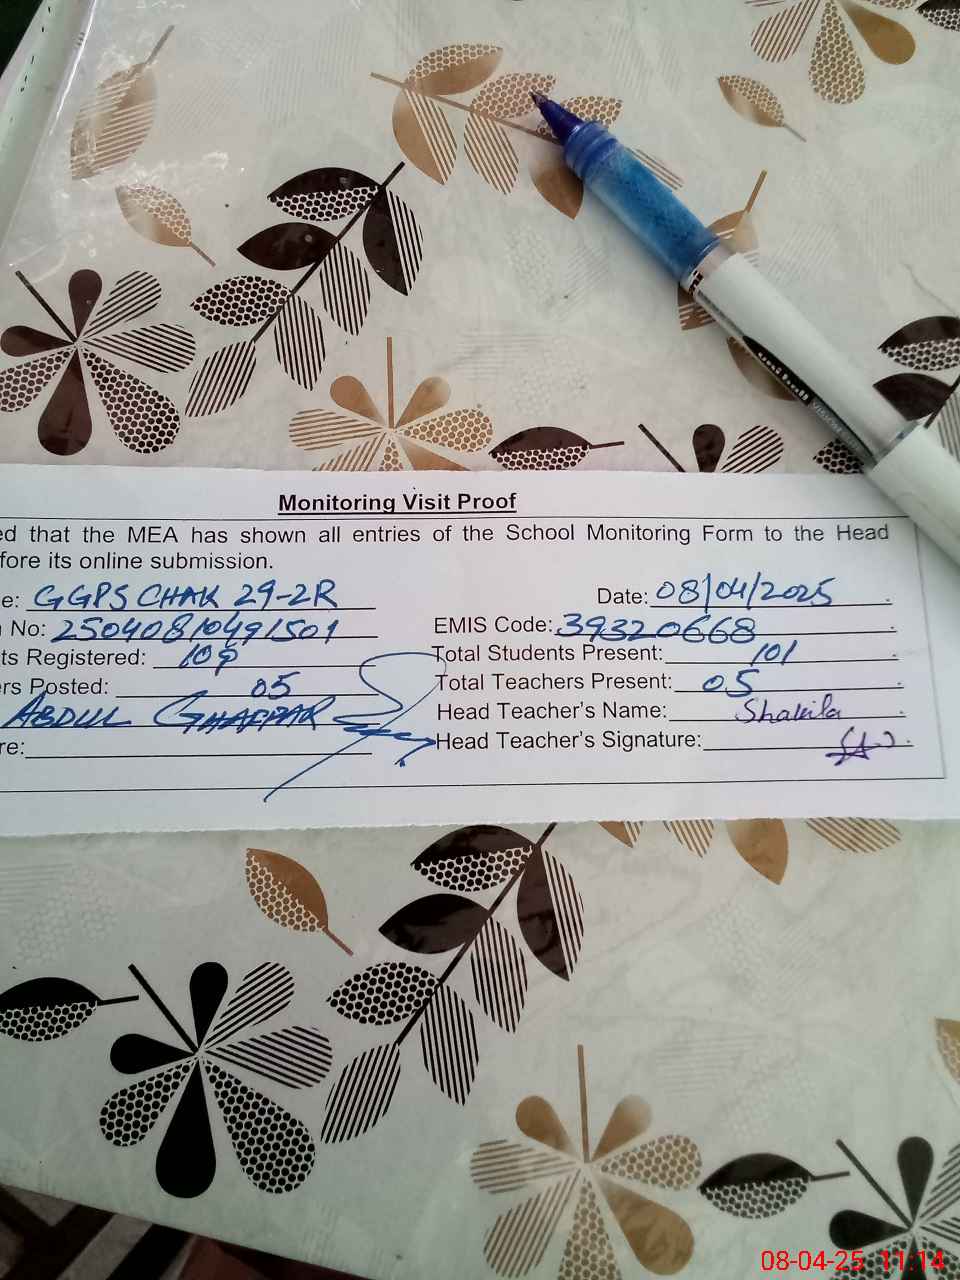 Monitoring Visit Proof
ed that the MEA has shown all entries of the School Monitoring Form to the Head
fore its online submission.
e: GGPS CHAK 29-2R Date: 08/04/2025
No: 25040810491501 EMIS Code: 39320668
ts Registered: Total Students Present: 101
ers Posted: 05 Total Teachers Present: 05
ABDUL GHAFFAR Head Teacher's Name: Shakila
re: Head Teacher's Signature:
uni-ball VISION
08-04-25 11:14